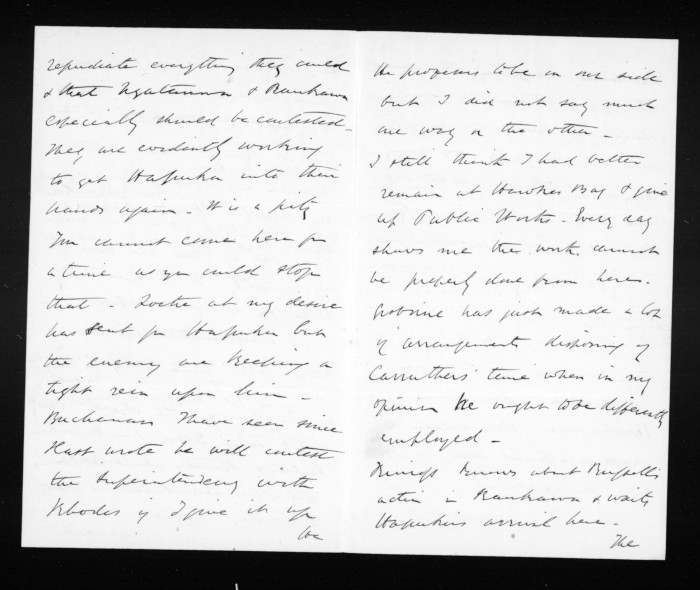 repudiate everything they could
& that Ngatarawa & Raukawa
especially should be contested -
They are evidently working
to get Hapuku into their
hands again - It is a pity
You cannot come here for
a time as you could stop
that - Locke at my desire
has sent for Hapuku but
the enemy are keeping a
tight rein upon him -
Buchanan I have seen since
Hart wrote he will contest
the Superintendency with
Rhodes if I give it up
He
He professes to be on our side
but I did not say much
one way or the other -
I still think I had better
remain at Hawkes Bay & give
up Public Works - Every day
shows me the work cannot
be properly done from here -
has just made a lot
of arrangements disposing of
Carruthers' time when in my
opinion he ought to be differently
employed -
knows about Russell's
action in Raukawa & waits
Hapuku's arrival here -
The